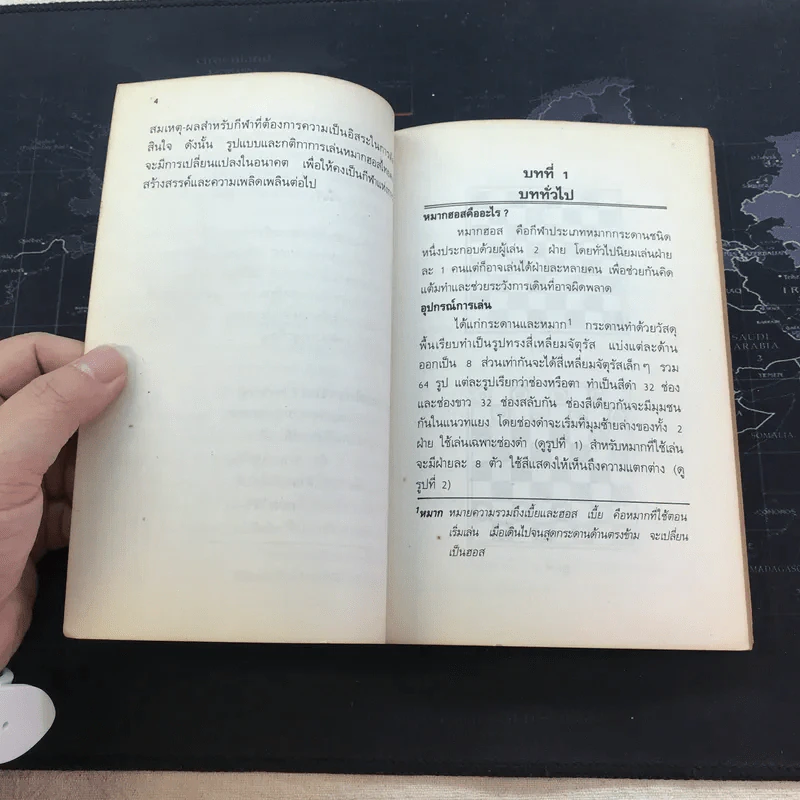 4
สมเหตุ-ผลสำหรับกีฬาที่ต้องการความเป็นอิสระในการ
สินใจ ดังนั้น รูปแบบและกติกาการเล่นหมากฮอส
จะมีการเปลี่ยนแปลงในอนาคต เพื่อให้คงเป็นกีฬาแห่ง
สร้างสรรค์และความเพลิดเพลินต่อไป
บทที่ 1
บททั่วไป
หมากฮอสคืออะไร ?
หมากฮอส คือกีฬาประเภทหมากกระดานชนิด
หนึ่งประกอบด้วยผู้เล่น 2 ฝ่าย โดยทั่วไปนิยมเล่นฝ่าย
ละ 1 คนแต่ก็อาจเล่นได้ฝ่ายละหลายคน เพื่อช่วยกันคิด
แต้มทำและช่วยระวังการเดินที่อาจผิดพลาด
อุปกรณ์การเล่น
ได้แก่กระดานและหมาก¹ กระดานทำด้วยวัสดุ
พื้นเรียบทำเป็นรูปทรงสี่เหลี่ยมจัตุรัส แบ่งแต่ละด้าน
ออกเป็น 8 ส่วนเท่ากันจะได้สี่เหลี่ยมจัตุรัสเล็กๆ รวม
64 รูป แต่ละรูปเรียกว่าช่องหรือตา ทำเป็นสีดำ 32 ช่อง
และช่องขาว 32 ช่องสลับกัน ช่องสีเดียวกันจะมีมุมชน
กันในแนวทแยง โดยช่องดำจะเริ่มที่มุมซ้ายล่างของทั้ง 2
ฝ่าย ใช้เล่นเฉพาะช่องดำ (ดูรูปที่ 1) สำหรับหมากที่ใช้เล่น
จะมีฝ่ายละ 8 ตัว ใช้สีแสดงให้เห็นถึงความแตกต่าง (ดู
รูปที่ 2)
¹หมาก หมายความรวมถึงเบี้ยและฮอส เบี้ย คือหมากที่ใช้ตอน
เริ่มเล่น เมื่อเดินไปจนสุดกระดานด้านตรงข้าม จะเปลี่ยน
เป็นฮอส
SAUDI
ARABIA
YEMEN
SOMALIA
MADAGASCAR